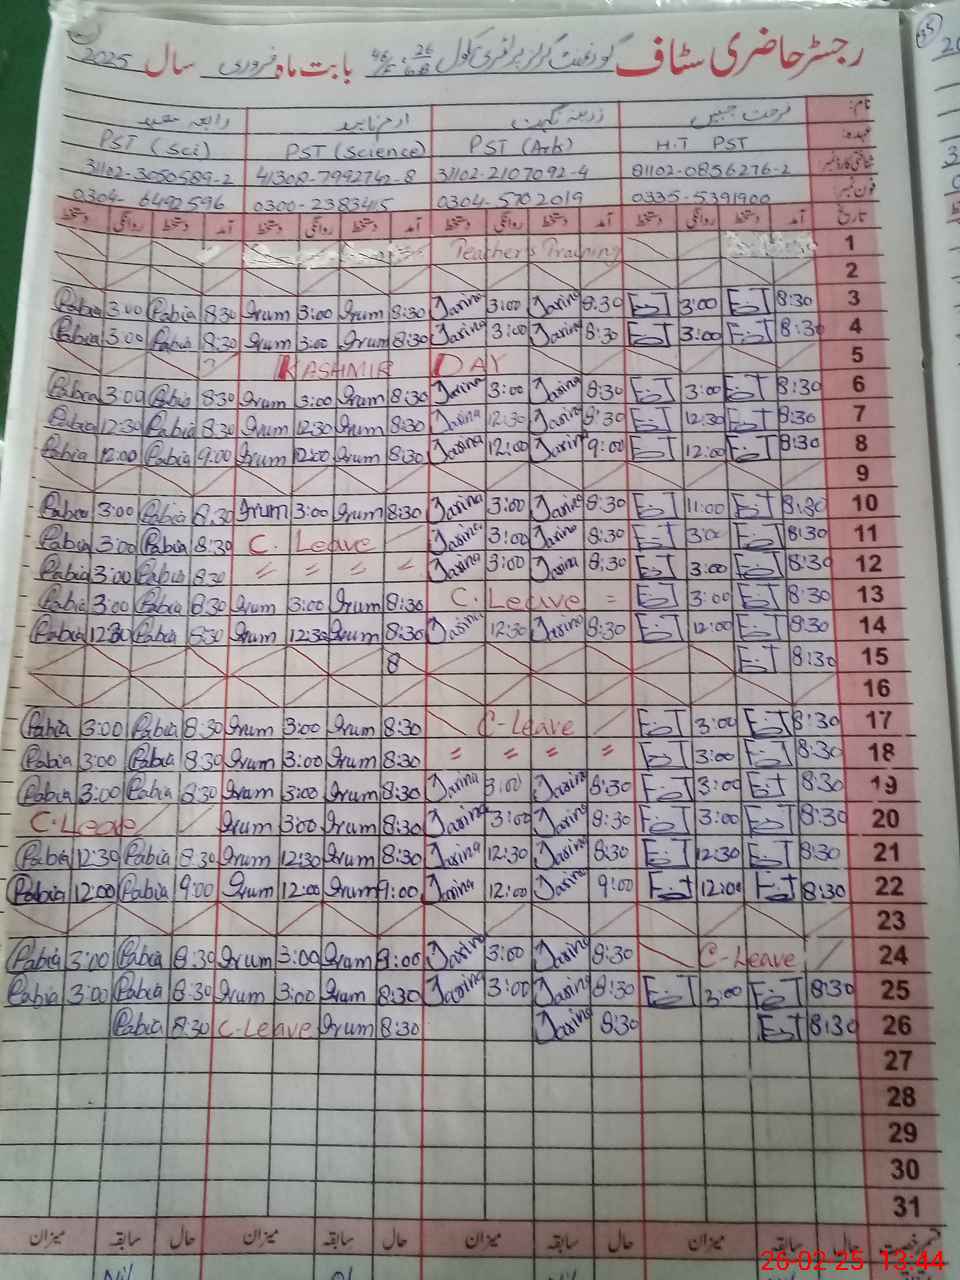 رجسٹر حاضری سٹاف گورنمنٹ گرلز پرائمری سکول بابت ماہ فروری سال 2025
نام: فرحت جبیں ارم ناہید رابعہ
عہدہ: H.T PST PST (Arts) PST (Science) PST (Sci)
شناختی کارڈ نمبر 81102-0856276-2 31102-2107092-4 41308-7992742-8 31102-3050589-2
فون نمبر: 0335-5391900 0304-5702019 0300-2383415 0304-6492596
تاریخ آمد دستخط روانگی دستخط آمد دستخط روانگی دستخط آمد دستخط روانگی دستخط آمد دستخط روانگی دستخط
Teacher's Training 1
2
Rabia 3:00 Rabia 8:30 Irum 3:00 Irum 8:30 Zarina 3:00 Zarina 8:30 3:00 8:30 3
Rabia 3:00 Rabia 8:30 Irum 3:00 Irum 8:30 Zarina 3:00 Zarina 8:30 3:00 8:30 4
KASHMIR DAY 5
Rabia 3:00 Rabia 8:30 Irum 3:00 Irum 8:30 Zarina 3:00 Zarina 8:30 3:00 8:30 6
Rabia 12:30 Rabia 8:30 Irum 12:30 Irum 8:30 Zarina 12:30 Zarina 8:30 12:30 8:30 7
Rabia 12:00 Rabia 9:00 Irum 12:00 Irum 8:30 Zarina 12:00 Zarina 9:00 12:00 8:30 8
9
Rabia 3:00 Rabia 8:30 Irum 3:00 Irum 8:30 Zarina 3:00 Zarina 8:30 11:00 8:30 10
Rabia 3:00 Rabia 8:30 C. Leave Zarina 3:00 Zarina 8:30 3:00 8:30 11
Rabia 3:00 Rabia 8:30 = = = = Zarina 3:00 Zarina 8:30 3:00 8:30 12
Rabia 3:00 Rabia 8:30 Irum 3:00 Irum 8:30 C. Leave = 3:00 8:30 13
Rabia 12:30 Rabia 8:30 Irum 12:30 Irum 8:30 Zarina 12:30 Zarina 8:30 12:00 8:30 14
8 8:30 15
16
Rabia 3:00 Rabia 8:30 Irum 3:00 Irum 8:30 C-Leave 3:00 8:30 17
Rabia 3:00 Rabia 8:30 Irum 3:00 Irum 8:30 = = = 3:00 8:30 18
Rabia 3:00 Rabia 8:30 Irum 3:00 Irum 8:30 Zarina 3:00 Zarina 8:30 3:00 8:30 19
C-Leave Irum 3:00 Irum 8:30 Zarina 3:00 Zarina 8:30 3:00 8:30 20
Rabia 12:30 Rabia 8:30 Irum 12:30 Irum 8:30 Zarina 12:30 Zarina 8:30 12:30 8:30 21
Rabia 12:00 Rabia 9:00 Irum 12:00 Irum 9:00 Zarina 12:00 Zarina 9:00 12:00 8:30 22
23
Rabia 3:00 Rabia 8:30 Irum 3:00 Irum 9:00 Zarina 3:00 Zarina 8:30 C-Leave 24
Rabia 3:00 Rabia 8:30 Irum 3:00 Irum 8:30 Zarina 3:00 Zarina 8:30 3:00 8:30 25
Rabia 8:30 C-Leave Irum 8:30 Zarina 8:30 8:30 26
27
28
29
30
31
حال سابقہ میزان حال سابقہ میزان حال سابقہ میزان حال سابقہ میزان
26-02-25 13:44